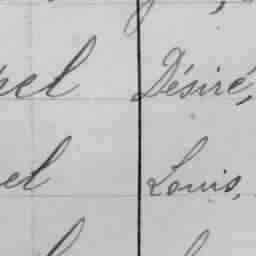 pel Désiré,
el Louis,